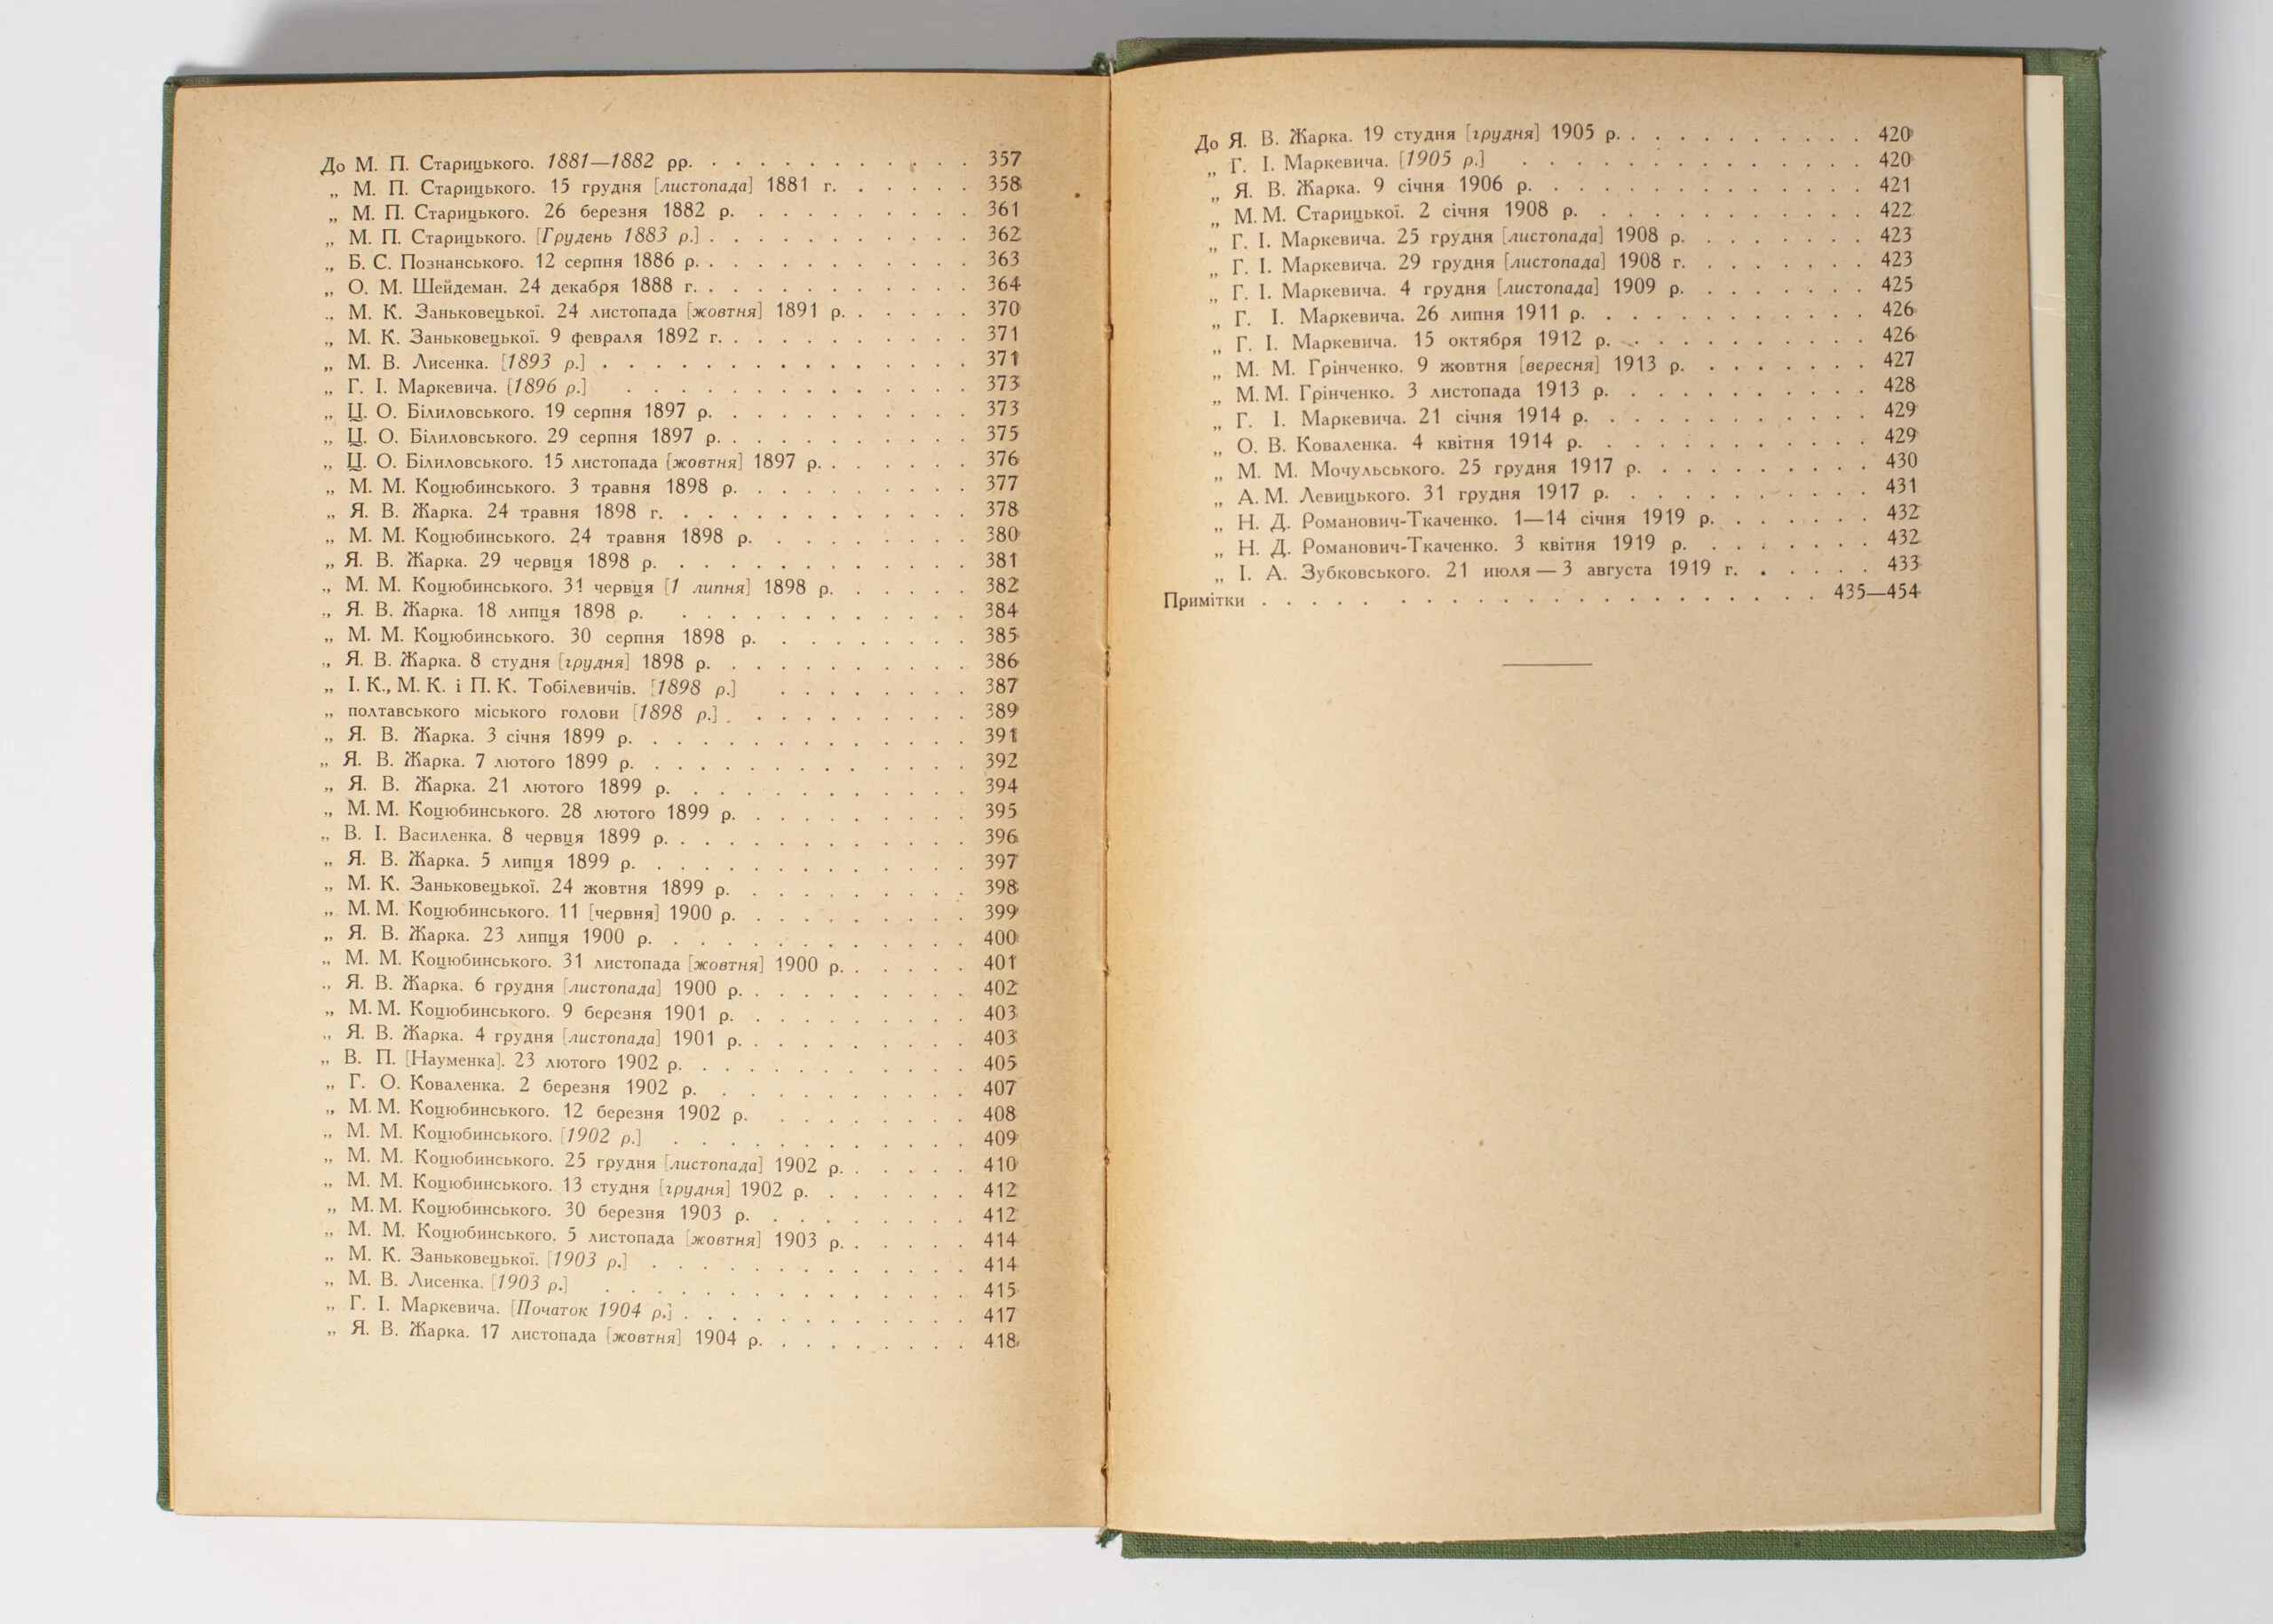 До М. П. Старицького. 1881—1882 рр. . . . . . . . . . . . 357
„ М. П. Старицького. 15 грудня [листопада] 1881 г. . . . . . 358
„ М. П. Старицького. 26 березня 1882 р. . . . . . . . . . 361
„ М. П. Старицького. [Грудень 1883 р.] . . . . . . . . . . . 362
„ Б. С. Познанського. 12 серпня 1886 р. . . . . . . . . . . . 363
„ О. М. Шейдеман. 24 декабря 1888 г. . . . . . . . . . . . 364
„ М. К. Заньковецької. 24 листопада [жовтня] 1891 р. . . . . . 370
„ М. К. Заньковецької. 9 февраля 1892 г. . . . . . . . . . . 371
„ М. В. Лисенка. [1893 р.] . . . . . . . . . . . . . . . 371
„ Г. І. Маркевича. [1896 р.] . . . . . . . . . . . . . . 373
„ Ц. О. Білиловського. 19 серпня 1897 р. . . . . . . . . . . 373
„ Ц. О. Білиловського. 29 серпня 1897 р. . . . . . . . . . . 375
„ Ц. О. Білиловського. 15 листопада [жовтня] 1897 р. . . . . . . 376
„ М. М. Коцюбинського. 3 травня 1898 р. . . . . . . . . . 377
„ Я. В. Жарка. 24 травня 1898 г. . . . . . . . . . . . . 378
„ М. М. Коцюбинського. 24 травня 1898 р. . . . . . . . . 380
„ Я. В. Жарка. 29 червця 1898 р. . . . . . . . . . . . . 381
„ М. М. Коцюбинського. 31 червця [1 липня] 1898 р. . . . . . 382
„ Я. В. Жарка. 18 липця 1898 р. . . . . . . . . . . . . 384
„ М. М. Коцюбинського. 30 серпня 1898 р. . . . . . . . . 385
„ Я. В. Жарка. 8 студня [грудня] 1898 р. . . . . . . . . . . 386
„ І. К., М. К. і П. К. Тобілевичів. [1898 р.] . . . . . . . . 387
„ полтавського міського голови [1898 р.] . . . . . . . . . . 389
„ Я. В. Жарка. 3 січня 1899 р. . . . . . . . . . . . . . 391
„ Я. В. Жарка. 7 лютого 1899 р. . . . . . . . . . . . . . 392
„ Я. В. Жарка. 21 лютого 1899 р. . . . . . . . . . . . . 394
„ М. М. Коцюбинського. 28 лютого 1899 р. . . . . . . . . . 395
„ В. І. Василенка. 8 червця 1899 р. . . . . . . . . . . . . 396
„ Я. В. Жарка. 5 липця 1899 р. . . . . . . . . . . . . . 397
„ М. К. Заньковецької. 24 жовтня 1899 р. . . . . . . . . . 398
„ М. М. Коцюбинського. 11 [червня] 1900 р. . . . . . . . . . 399
„ Я. В. Жарка. 23 липця 1900 р. . . . . . . . . . . . . 400
„ М. М. Коцюбинського. 31 листопада [жовтня] 1900 р. . . . . . 401
„ Я. В. Жарка. 6 грудня [листопада] 1900 р. . . . . . . . . . 402
„ М. М. Коцюбинського. 9 березня 1901 р. . . . . . . . . . 403
„ Я. В. Жарка. 4 грудня [листопада] 1901 р. . . . . . . . . . 403
„ В. П. [Науменка]. 23 лютого 1902 р. . . . . . . . . . . . 405
„ Г. О. Коваленка. 2 березня 1902 р. . . . . . . . . . . . 407
„ М. М. Коцюбинського. 12 березня 1902 р. . . . . . . . . 408
„ М. М. Коцюбинського. [1902 р.] . . . . . . . . . . . . 409
„ М. М. Коцюбинського. 25 грудня [листопада] 1902 р. . . . . . 410
„ М. М. Коцюбинського. 13 студня [грудня] 1902 р. . . . . . . 412
„ М. М. Коцюбинського. 30 березня 1903 р. . . . . . . . . 412
„ М. М. Коцюбинського. 5 листопада [жовтня] 1903 р. . . . . . 414
„ М. К. Заньковецької. [1903 р.] . . . . . . . . . . . . . 414
„ М. В. Лисенка. [1903 р.] . . . . . . . . . . . . . . . 415
„ Г. І. Маркевича. [Початок 1904 р.] . . . . . . . . . . . . 417
„ Я. В. Жарка. 17 листопада [жовтня] 1904 р. . . . . . . . . 418
До Я. В. Жарка. 19 студня [грудня] 1905 р. . . . . . . . . . . 420
„ Г. І. Маркевича. [1905 р.] . . . . . . . . . . . . . . 420
„ Я. В. Жарка. 9 січня 1906 р. . . . . . . . . . . . . . 421
„ М. М. Старицької. 2 січня 1908 р. . . . . . . . . . . . 422
„ Г. І. Маркевича. 25 грудня [листопада] 1908 р. . . . . . . . 423
„ Г. І. Маркевича. 29 грудня [листопада] 1908 г. . . . . . . . 423
„ Г. І. Маркевича. 4 грудня [листопада] 1909 р. . . . . . . . 425
„ Г. І. Маркевича. 26 липня 1911 р. . . . . . . . . . . . 426
„ Г. І. Маркевича. 15 октября 1912 р. . . . . . . . . . . 426
„ М. М. Грінченко. 9 жовтня [вересня] 1913 р. . . . . . . . 427
„ М. М. Грінченко. 3 листопада 1913 р. . . . . . . . . . . 428
„ Г. І. Маркевича. 21 січня 1914 р. . . . . . . . . . . . 429
„ О. В. Коваленка. 4 квітня 1914 р. . . . . . . . . . . . 429
„ М. М. Мочульського. 25 грудня 1917 р. . . . . . . . . . 430
„ А. М. Левицького. 31 грудня 1917 р. . . . . . . . . . . 431
„ Н. Д. Романович-Ткаченко. 1—14 січня 1919 р. . . . . . . 432
„ Н. Д. Романович-Ткаченко. 3 квітня 1919 р. . . . . . . . 432
„ І. А. Зубковського. 21 июля — 3 августа 1919 г. . . . . . . 433
Примітки . . . . . . . . . . . . . . . . . . . . . . 435—454